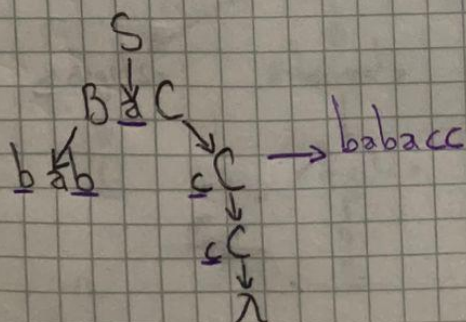 S
B a C
b a b
c C → babacc
c C
λ